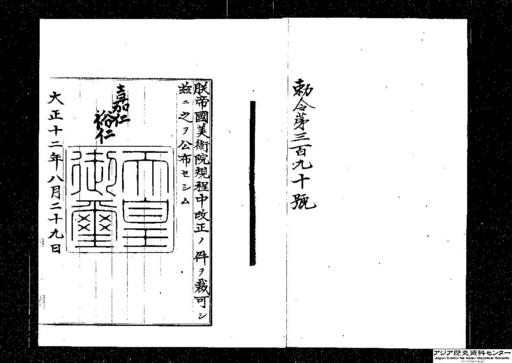 勅令第三百九十號
朕帝國美術院規程中改正ノ件ヲ裁可シ
茲ニ之ヲ公布セシム
嘉仁
裕仁
天皇
御璽
大正十二年八月二十九日
アジア歴史資料センター
Japan Center for Asian Historical Records